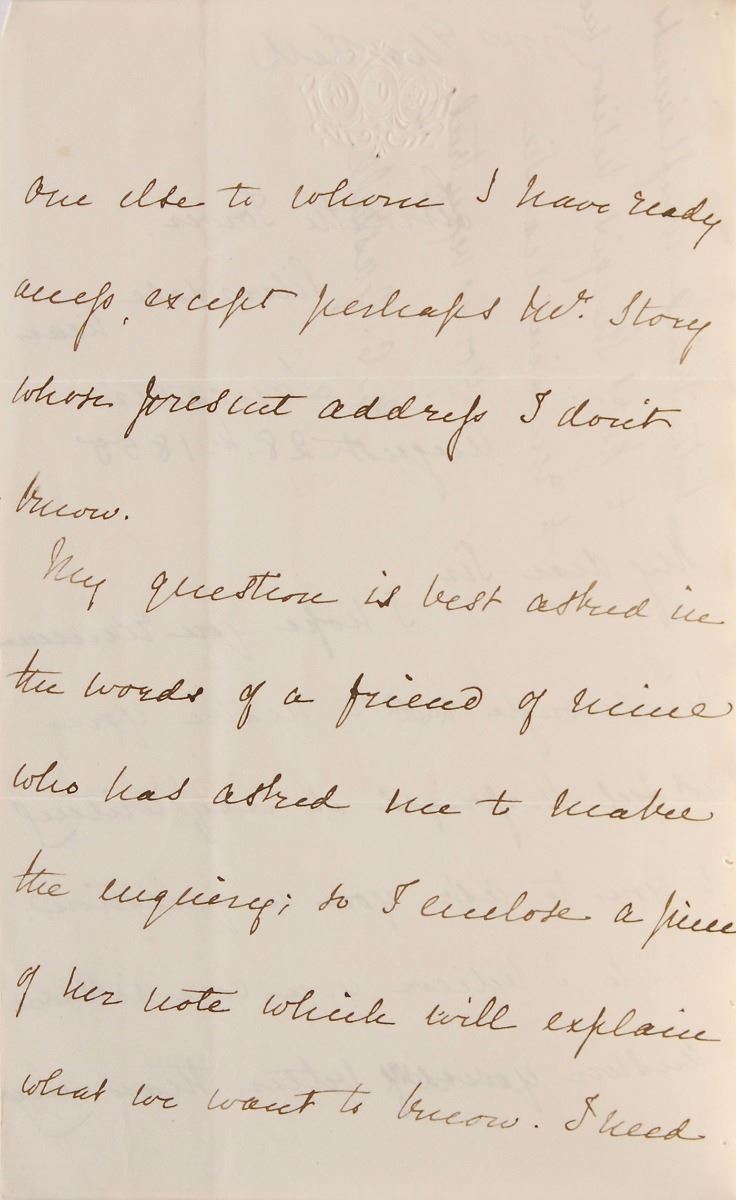 one else to whom I have ready
access, except perhaps Mr. Story
whose present address I don't
know.
My question is best asked in
the words of a friend of mine
who has asked me to make
the enquiry; so I enclose a piece
of her note which will explain
what we want to know. I need